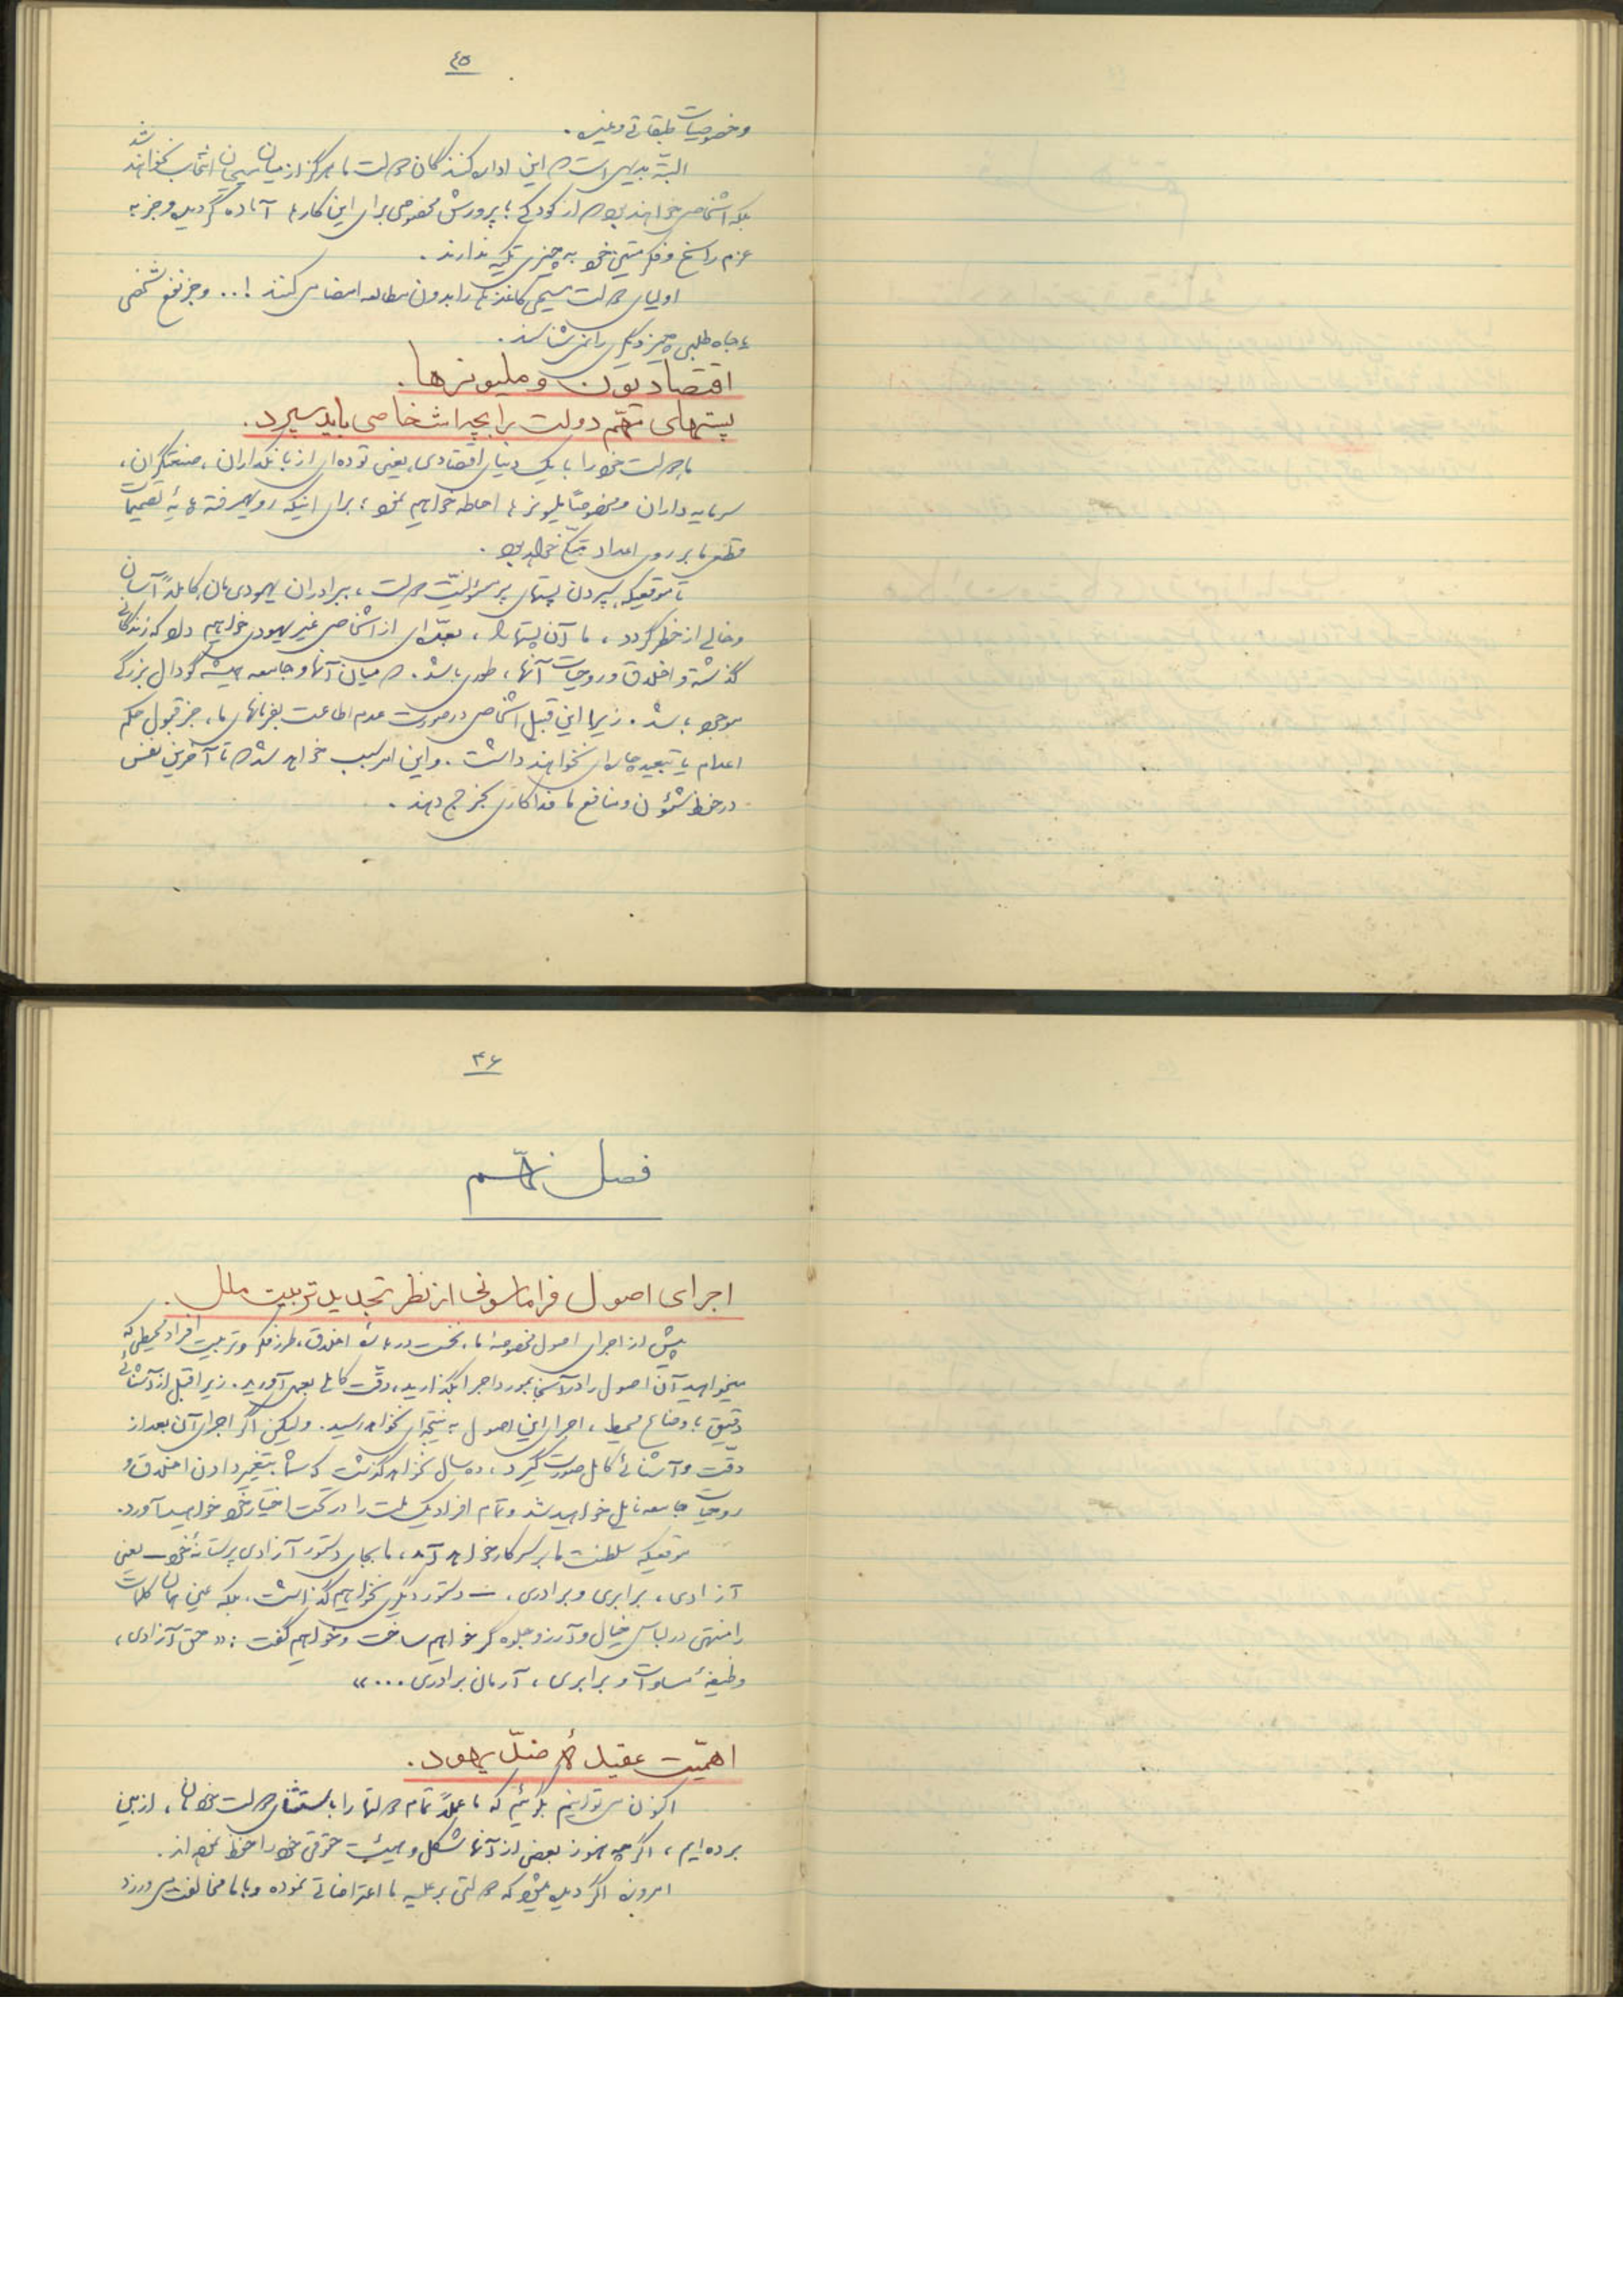 ٤٥
و خصوصیات طبقاتی و غیره.
البته بدیهی است که این اداره کنندگان دولت ما هرگز از میان مسیحیان انتخاب نخواهند شد
بلکه اشخاصی خواهند بود که از کودکی با پرورش مخصوص برای این کارها آماده گردیده و جز به
عزم راسخ و فکر متین خود به چیزی تکیه ندارند.
اولیای دولت مسیحی کاغذها را بدون مطالعه امضا می کنند !.. و جز نفع شخصی
و جاه طلبی چیز دیگری را نمی شناسند.
اقتصادیون و ملیونرها.
پستهای مهّم دولت را بچه اشخاصی باید سپرد.
ما دولت خود را با یک دنیای اقتصادی، یعنی توده‌ای از بانکداران، صنعتگران،
سرمایه داران و مخصوصاً ملیونرها احاطه خواهیم نمود، برای اینکه رویهمرفته پایهٔ تصمیمات
قطعی ما بر روی اعداد متکی خواهد بود.
تا موقعیکه سپردن پستهای پر مسؤلیت دولت، ببرادران یهودی مان کاملاً آسان
و خالی از خطر گردد، ما آن پستها را، بعدّه‌ای از اشخاص غیر یهودی خواهیم داد که زندگانی
گذشته و اخلاق و روحیات آنها، طوری باشد. که میان آنها و جامعه همیشه گودال بزرگی
موجود باشد. زیرا این قبیل اشخاص در صورت عدم اطاعت بفرمانهای ما، جز قبول حکم
اعدام یا تبعید چاره‌ای نخواهند داشت. و این امر سبب خواهد شد که تا آخرین نفس
در حفظ شئون و منافع ما فداکاری بخرج دهند.
٤٦
فصل نهّم
اجرای اصول فراماسونی از نظر تجدید تربیت ملل.
پیش از اجرای اصول مخصوصهٔ ما، نخست درباره اخلاق، طرز فکر و تربیت افراد محیطی که
میخواهید آن اصول را در آنجا بمورد اجرا بگذارید، دقّت کاملی بعمل آورید. زیرا قبل از آشنائی
دقیق با اوضاع محیط، اجرای این اصول به نتیجه‌ای نخواهد رسید. ولیکن اگر اجرای آن بعد از
دقّت و آشنائی کامل صورت گیرد، ده سال نخواهد گذشت که شما بتغییر دادن اخلاق و
روحیات جامعه نایل خواهید شد و تمام افراد یک ملت را در تحت اختیار خود خواهید آورد.
موقعیکه سلطنت ما بر سر کار خواهد آمد، ما بجای دستور آزادی پرستانهٔ خود ــ یعنی
آزادی، برابری و برادری، ــ دستور دیگری نخواهیم گذاشت. بلکه عین همان کلمات
را منتهی در لباس خیال و آرزو جلوه گر خواهیم ساخت و خواهیم گفت : « حق آزادی،
وظیفهٔ مساوات و برابری، آرمان برادری ... »
اهمّیت عقیدهٔ ضدّ یهود.
اکنون می توانیم بگوئیم که ما عملاً تمام دولتها را باستثنای دولت خودمان، از بین
برده‌ایم، اگر چه هنوز بعضی از آنها شکل و هیئت حقوقی خود را حفظ نموده‌اند.
امروزه اگر دیده میشود که دولتی بر علیه ما اعتراضاتی نموده و با ما مخالفت می ورزد